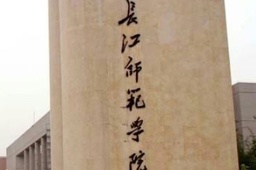 長江师範学院